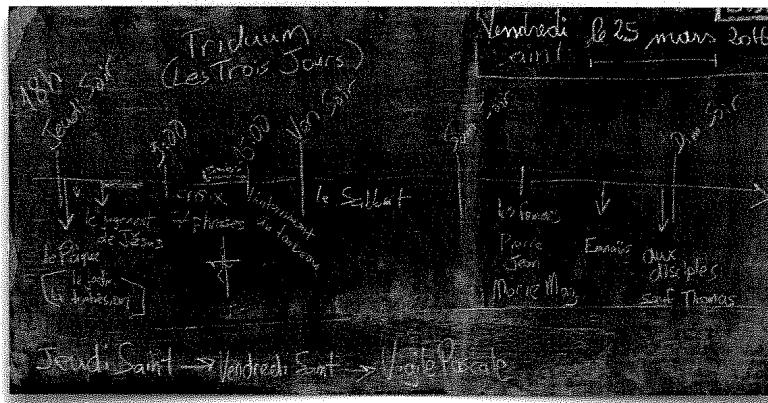 Triduum
(Les Trois Jours)
Vendredi
Saint
le 25 mars
2016
18h
Jeudi Soir
Ven Soir
Sam Soir
Dim Soir
le jugement
de Jésus
la Pâque
croix
7 phrases
l'enterrement
du tombeau
le Sabbat
les femmes
Pierre
Jean
Marie Mag
Emmaüs
aux
disciples
sauf Thomas
Jeudi Saint → Vendredi Saint → Vigile Pascale